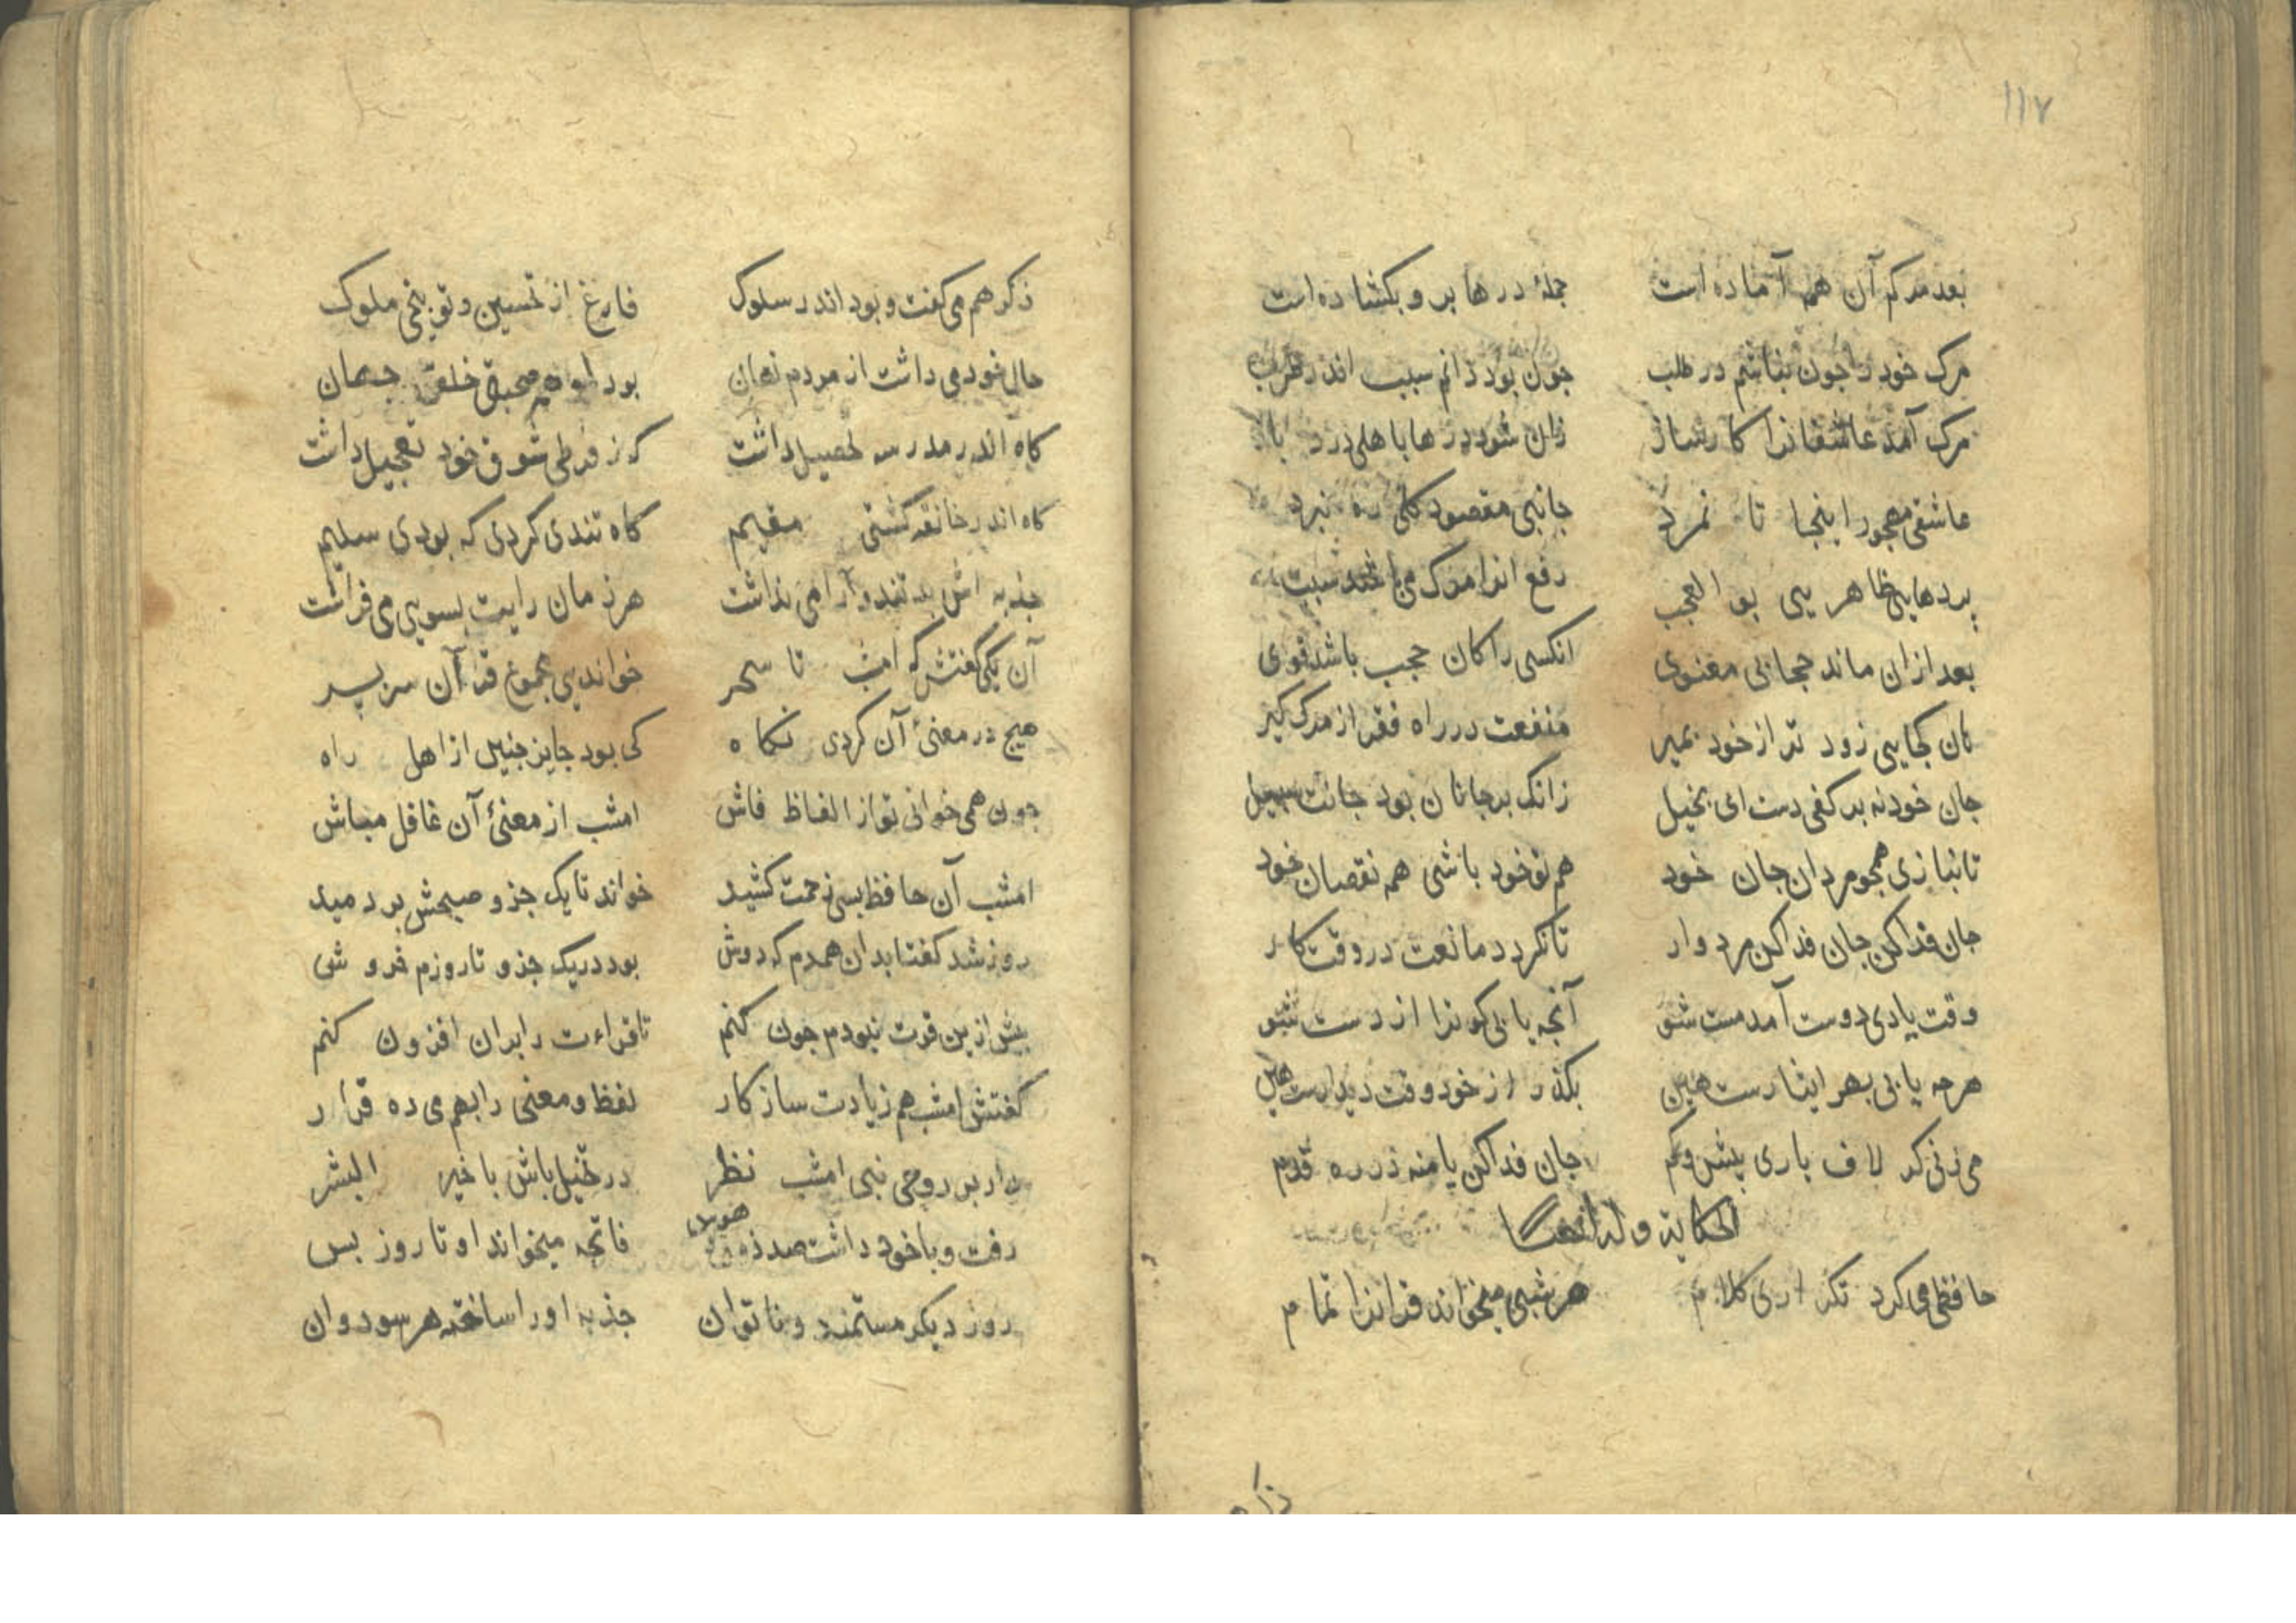 ١١٧
بعد مرکم آن همه آماده است جملهٔ درها برو بکشاده است
مرک خود را جون نباشم در طلب جون بود زانم سبب اندر طرب
مرک آمد عاشقانرا کارساز زان شود درها باهلی درد باز
عاشقی مهجور اینجا تا نمرد جانبی مقصود کلی ره نبرد
پردهایی ظاهریی بو العجب رفع انرا مرک می باشد سبب
بعد ازان ماند حجابی معنوی انکسی را کان حجب باشد قوی
کان کجایی زود تر از خود بمیر منفعت در راه فقر از مرک کیر
جان خود نه بر کفی دست ای بخیل زانک بر جانان بود جانت سبیل
تا نبازی همجو مردان جان خود هم تو خود باشی همه نقصان خود
جان فدا کن جان فدا کن مرد وار تا نکردد مانعت در وقت کار
وقت یادی دوست آمد مست شو آنجه یابی کو ترا از دست شو
هرجه یابی بهر ایثارست هین بکذر از خود وقت دیدارست هین
می زنی کر لاف یاری پیش وکم جان فدا کن یا منه در ره قدم
الحکایة
حافظی می کرد تکراری کلام هر شبی میخواند قرانرا تمام
ذکر
ذکر هم می کفت و بود اندر سلوک فارغ از تحسین و توبیخی ملوک
حال خود می داشت از مردم نهان بود صحبتی خلقی جهان
کاه اندر مدرسه تحصیل داشت کز فرطی شوق خود تعجیل داشت
کاه اندر خانقه کشتی مقیم کاه تندی کردی که بودی سلیم
جذبه اش بد تند و آرامی نداشت هر زمان رایت بسویی می فراشت
آن یکی گفتش که امشب تا سحر خواندیی مجموع قرآن سربسر
هیج در معنیٔ آن کردی نکاه کی بود جایز جنین از اهل راه
جون همی خوانی تو از الفاظ فاش امشب از معنیٔ آن غافل مباش
امشب آن حافظ بسی زحمت کشید خواند تا یک جزو صبحش بر دمید
روز شد کفتا بدان همدم که دوش بود در یک جزو تا روزم خروش
بیش ازین قوت نبودم جون کنم تا قراءت را بران افزون کنم
کفتش امشب هم زیادت ساز کار لفظ و معنی را بهم می ده قرار
دار بر روحی نبی امشب نظر در تخیل باش با خیر البشر
رفت و با خود داشت صد هوس فاتحه میخواند او تا روز بس
روز دیکر مستمند و ناتوان جذبه او را ساخته هر سو دوان